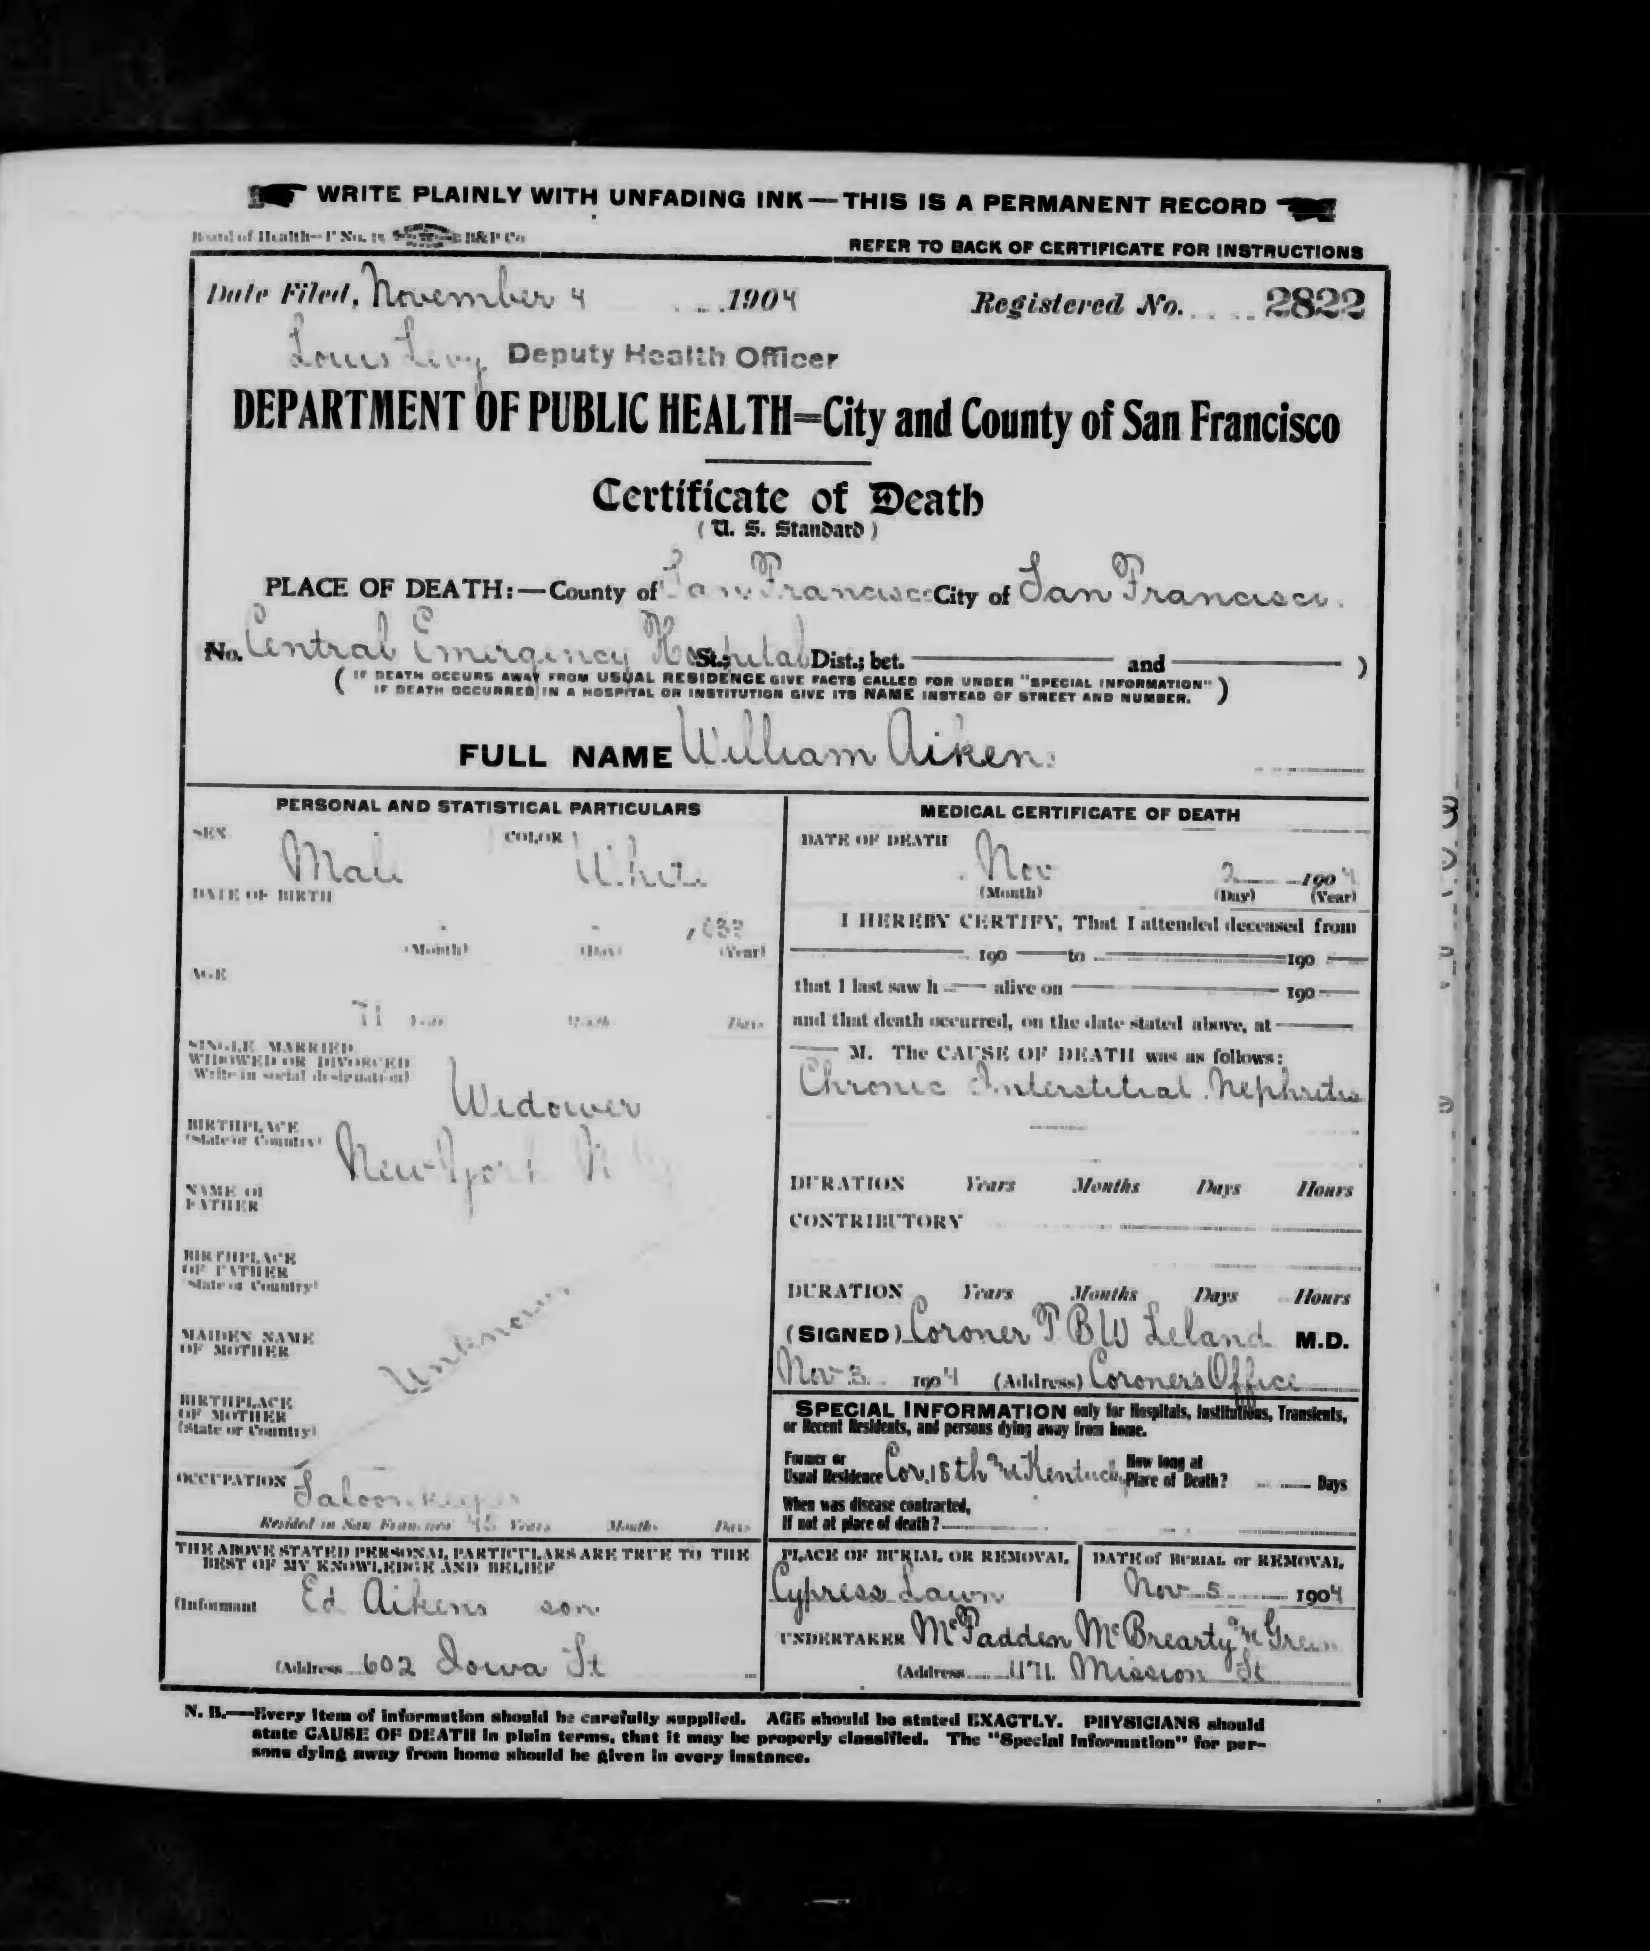 WRITE PLAINLY WITH UNFADING INK—THIS IS A PERMANENT RECORD
Board of Health—F No. B&P Co
REFER TO BACK OF CERTIFICATE FOR INSTRUCTIONS
Date Filed, November 4 1904 Registered No. 2822
Louis Levy Deputy Health Officer
DEPARTMENT OF PUBLIC HEALTH=City and County of San Francisco
Certificate of Death
(U. S. Standard)
PLACE OF DEATH:—County of San Francisco City of San Francisco
No. Central Emergency Hospital St.; Dist.; bet. and )
( IF DEATH OCCURS AWAY FROM USUAL RESIDENCE GIVE FACTS CALLED FOR UNDER "SPECIAL INFORMATION"
IF DEATH OCCURRED IN A HOSPITAL OR INSTITUTION GIVE ITS NAME INSTEAD OF STREET AND NUMBER. )
FULL NAME William Aiken
PERSONAL AND STATISTICAL PARTICULARS
SEX Male COLOR White
DATE OF BIRTH
(Month) (Day) (Year)
AGE
71 Years Months Days
SINGLE, MARRIED,
WIDOWED OR DIVORCED
(Write in social designation)
Widower
BIRTHPLACE
(State or Country)
New York N Y
NAME OF
FATHER
BIRTHPLACE
OF FATHER
(State or Country)
Unknown
MAIDEN NAME
OF MOTHER
BIRTHPLACE
OF MOTHER
(State or Country)
OCCUPATION Saloon keeper
Resided in San Francisco 45 Years Months Days
THE ABOVE STATED PERSONAL PARTICULARS ARE TRUE TO THE
BEST OF MY KNOWLEDGE AND BELIEF
(Informant Ed Aikens son
(Address 602 Iowa St
MEDICAL CERTIFICATE OF DEATH
DATE OF DEATH
Nov 2 1904
(Month) (Day) (Year)
I HEREBY CERTIFY, That I attended deceased from
190 to 190
that I last saw h alive on 190
and that death occurred, on the date stated above, at
M. The CAUSE OF DEATH was as follows:
Chronic Interstitial Nephritis
DURATION Years Months Days Hours
CONTRIBUTORY
DURATION Years Months Days Hours
(SIGNED) Coroner T B W Leland M.D.
Nov 3 1904 (Address) Coroners Office
SPECIAL INFORMATION only for Hospitals, Institutions, Transients,
or Recent Residents, and persons dying away from home.
Former or
Usual Residence Cor. 18th and Kentucky
How long at
Place of Death? Days
When was disease contracted,
If not at place of death?
PLACE OF BURIAL OR REMOVAL
Cypress Lawn
DATE of BURIAL or REMOVAL
Nov 5 1904
UNDERTAKER McFadden McBrearty & Green
(Address 1171 Mission St
N. B.—Every item of information should be carefully supplied. AGE should be stated EXACTLY. PHYSICIANS should
state CAUSE OF DEATH in plain terms, that it may be properly classified. The "Special Information" for per-
sons dying away from home should be given in every instance.